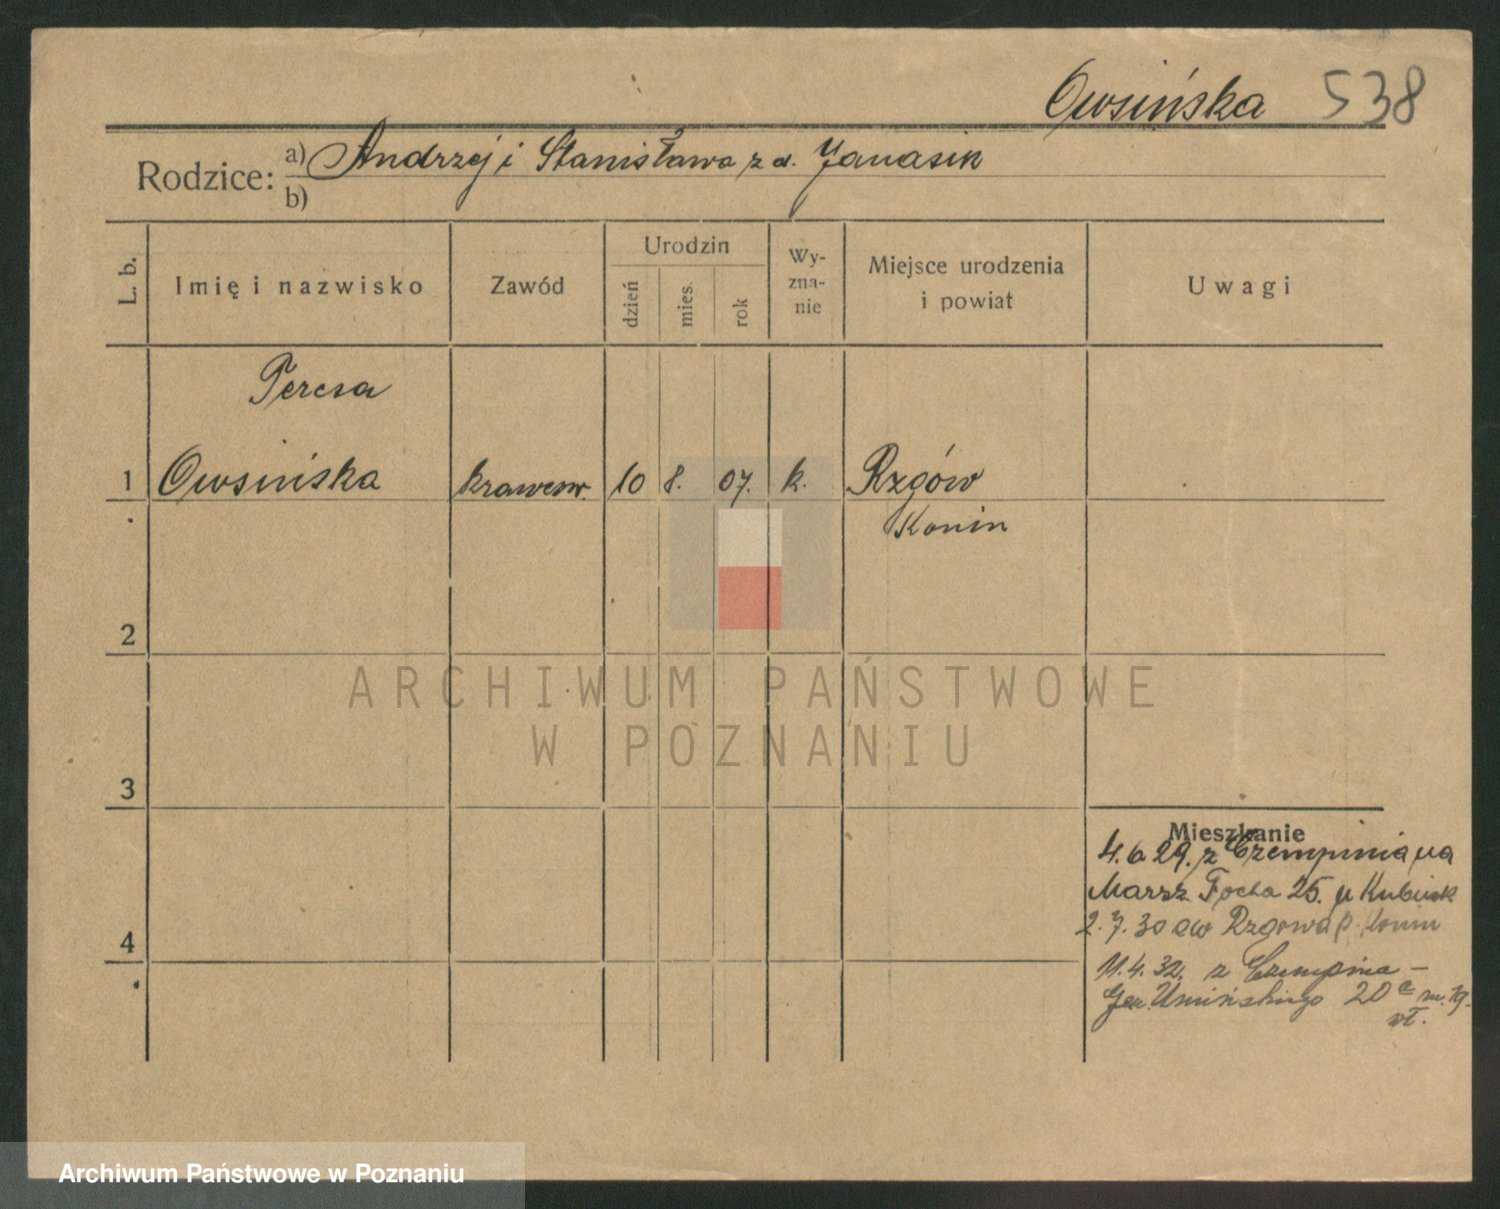 Owsińska 538
Rodzice: a) Andrzej i Stanisława z d. Janasik
b)
L. b.
Imię i nazwisko
Zawód
Urodzin
dzień
mies.
rok
Wy-
zna-
nie
Miejsce urodzenia
i powiat
Uwagi
Teresa
1 Owsińska krawcow. 10 8. 07. k. Rzgów
Konin
2
3
4
Mieszkanie
4. 6 29. z Czempinia na
Marsz. Focha 25. u
2. 7. 30 do Rzgowa p. Konin
11. 4. 32. z Czempinia –
Gen. Umińskiego 20a m. 19.
wł.
ARCHIWUM PAŃSTWOWE
W POZNANIU
Archiwum Państwowe w Poznaniu